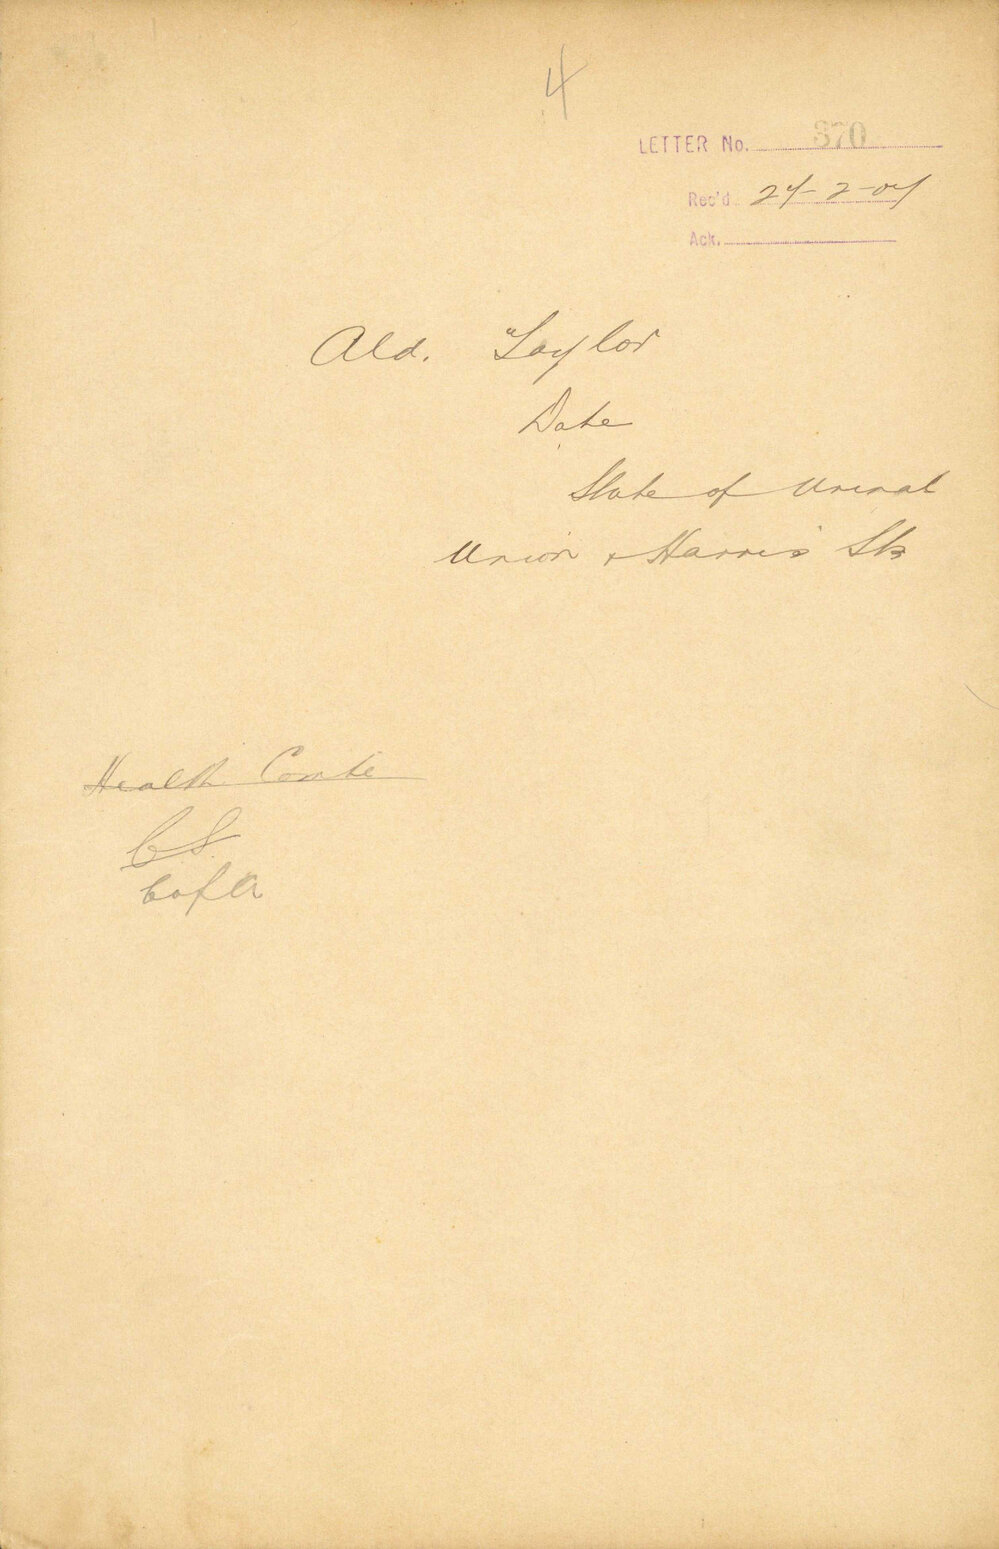 4
LETTER No. 370
Rec'd 27-2-07
Ack.
Ald. Taylor
Date
State of Urinal
Union & Harris Sts
Health Comte
CS
C of A